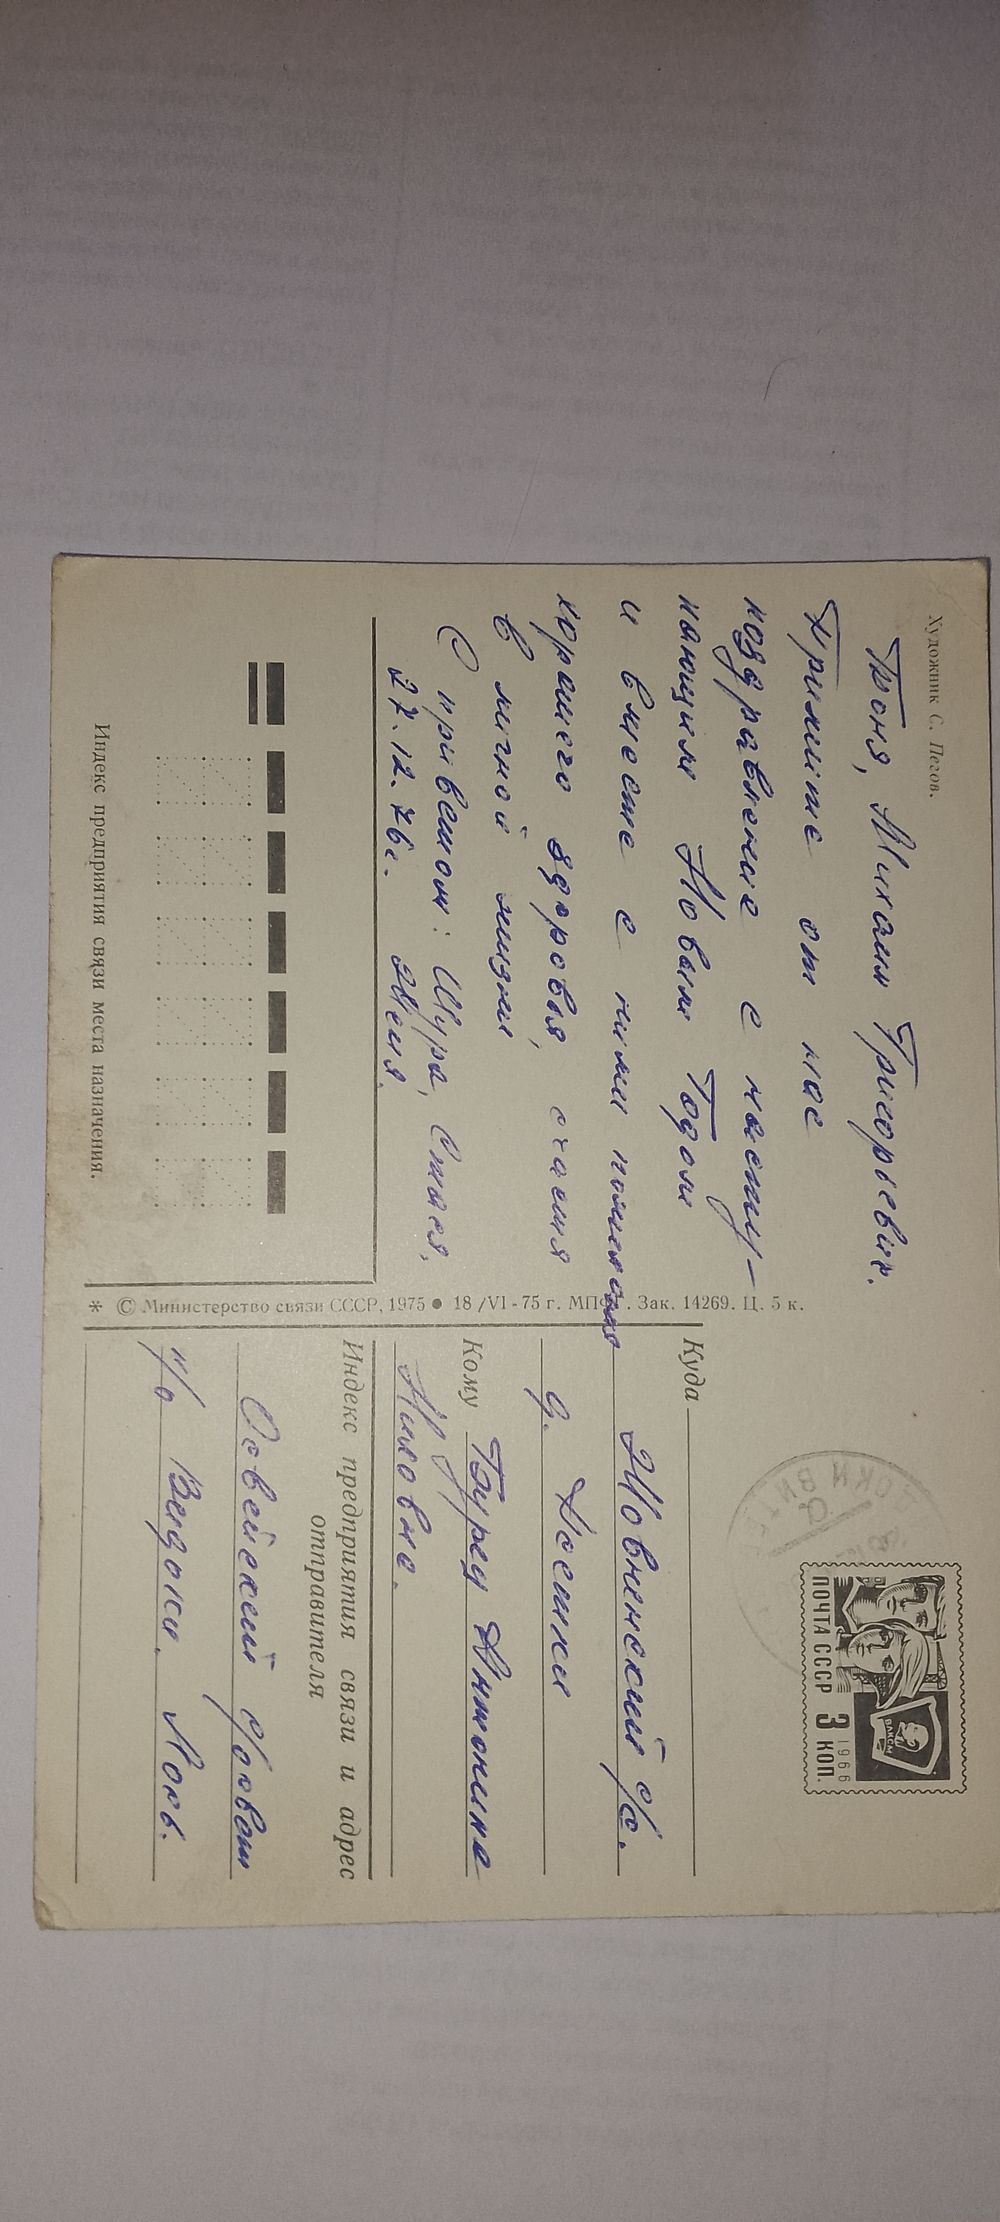 Художник С. Пегов.
Тоня, Михаил Григорьевич.
Примите от нас
поздравление с насту-
пающим Новым Годом
и вместе с ними пожелания
хорошего здоровья, счастья
в личной жизни
С приветом: Шура, Стася,
27.12.76г. Женя.
Индекс предприятия связи места назначения.
* © Министерство связи СССР, 1975 ● 18/VI-75 г. МПФГ. Зак. 14269. Ц. 5 к.
ПОЧТА СССР 3 КОП.
1966
ВЛКСМ
Куда
с/с.
д.
Кому Антонине
Индекс предприятия связи и адрес
отправителя
Освейский с/совет
п/о